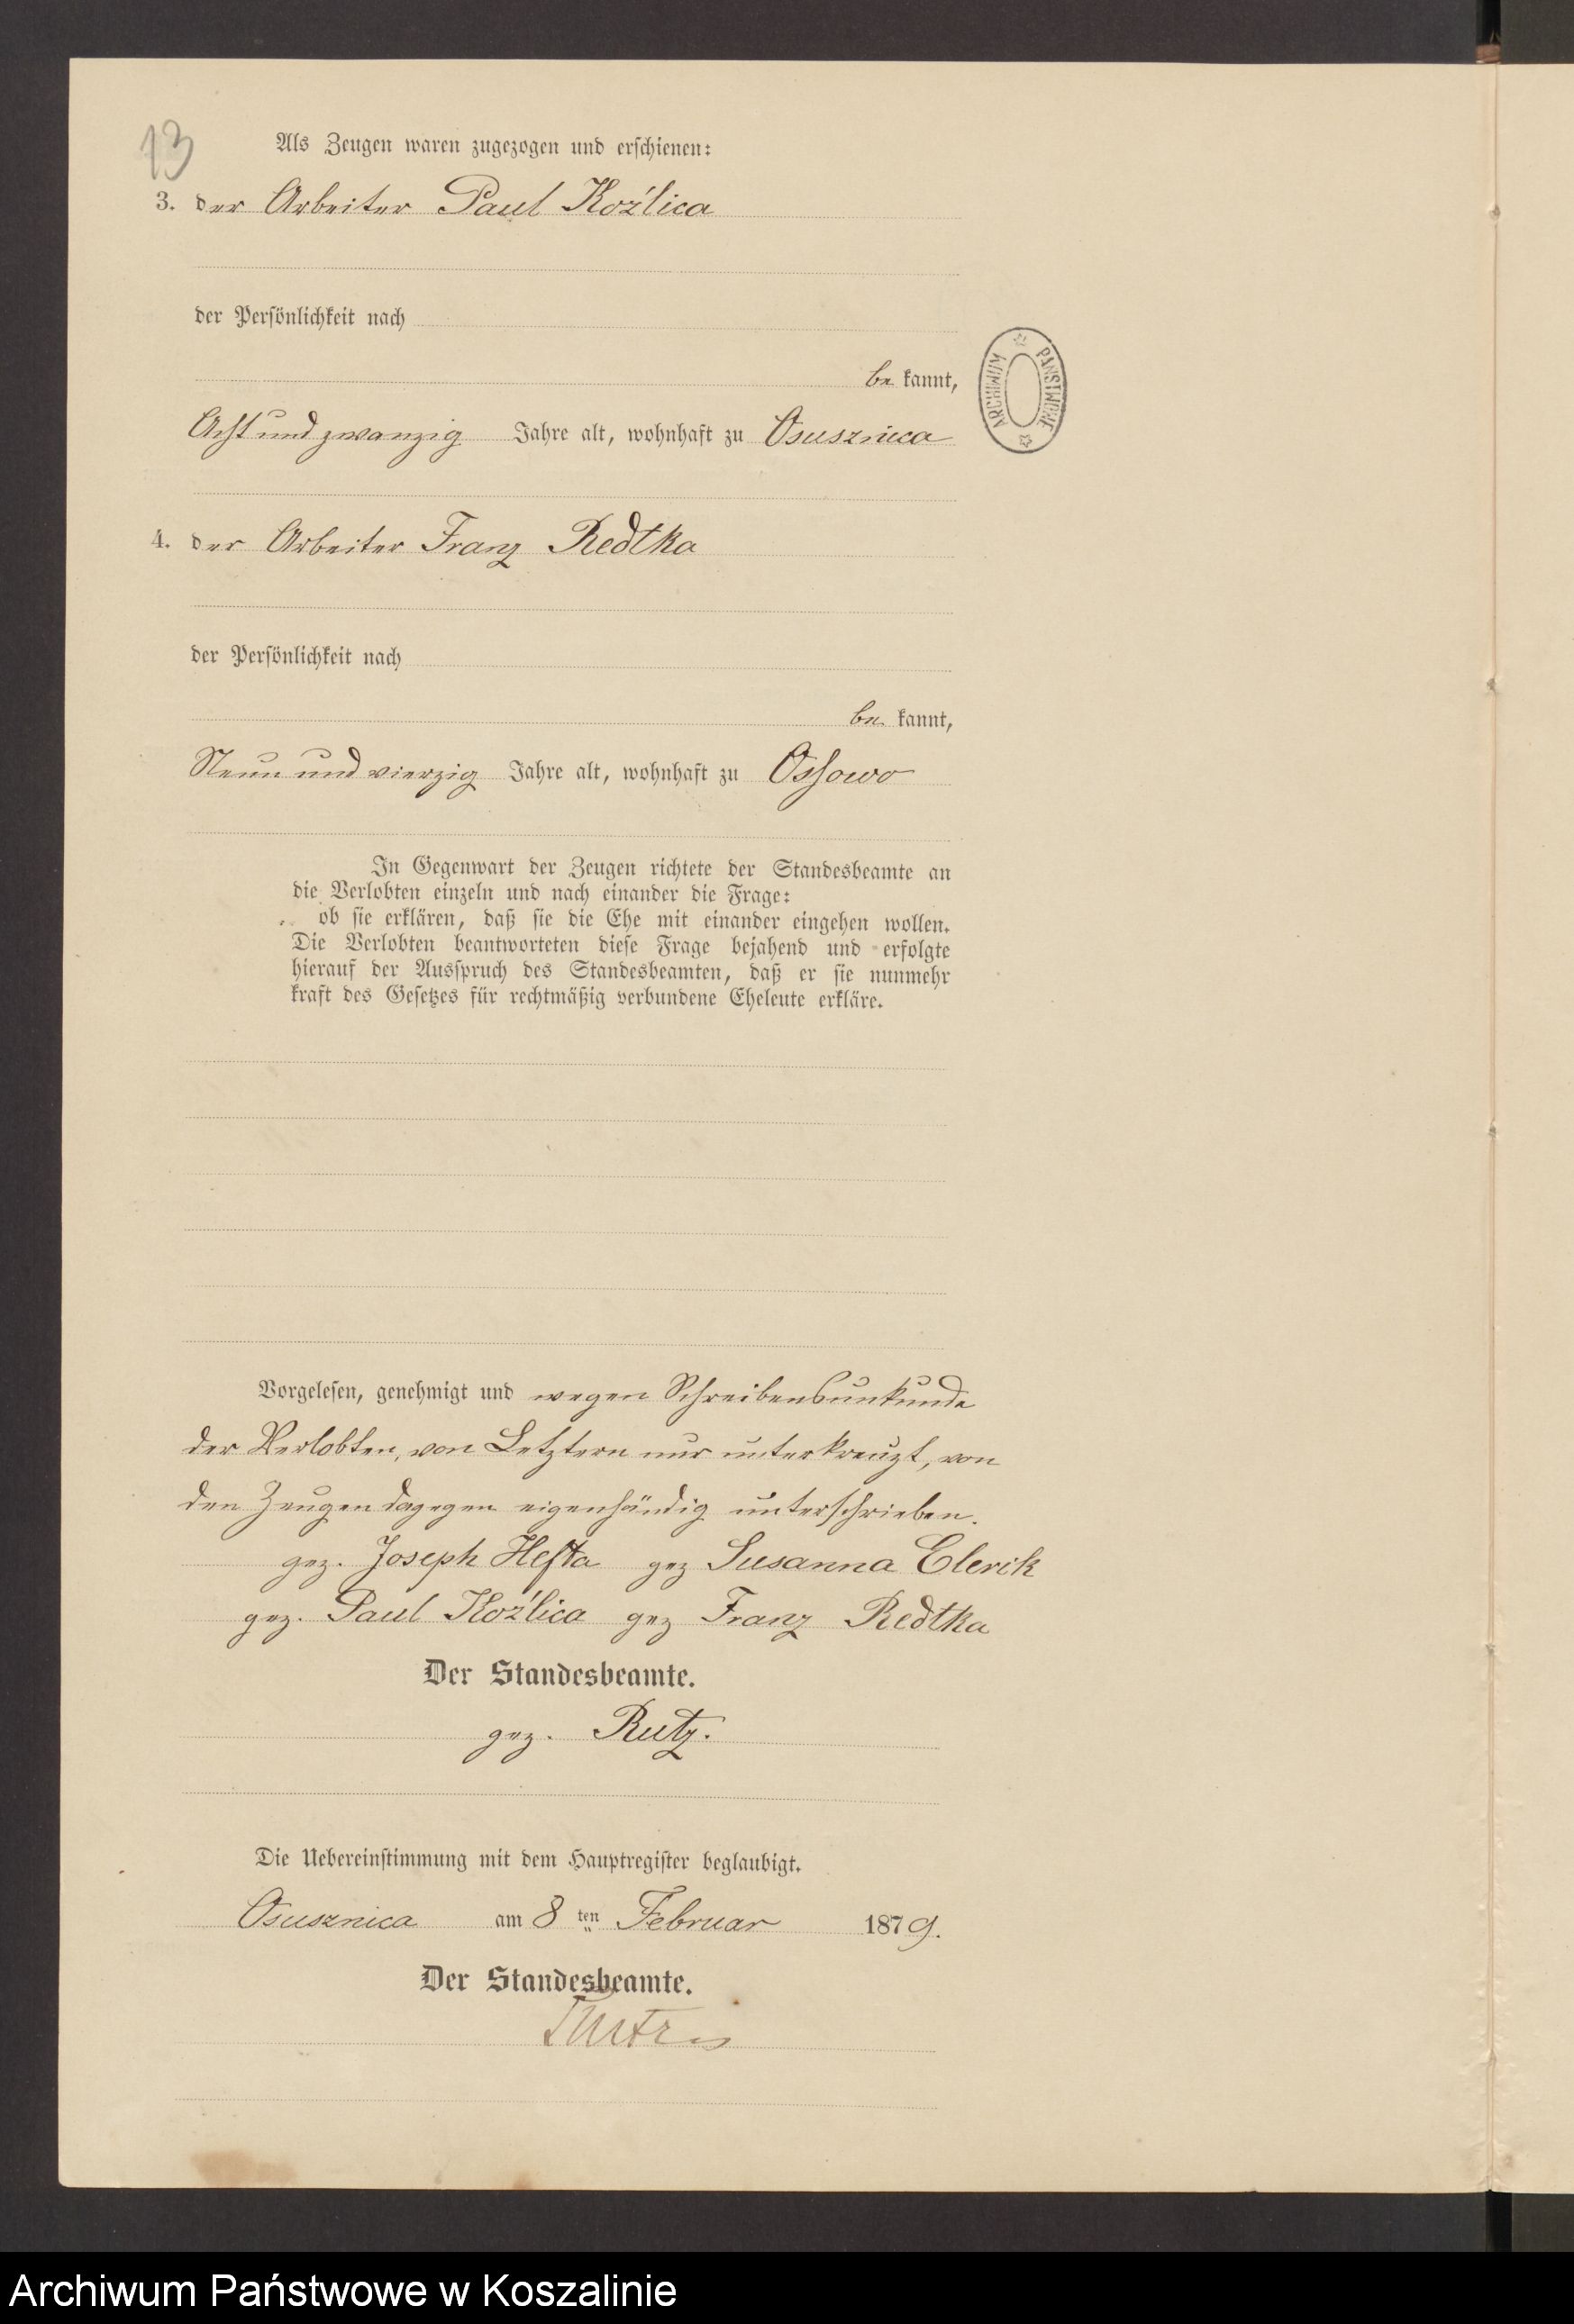 13
Als Zeugen waren zugezogen und erschienen:
3. der Arbeiter Paul Koźlica
der Persönlichkeit nach
be kannt,
Acht und zwanzig Jahre alt, wohnhaft zu Osusznica
ARCHIWUM PAŃSTWOWE
4. der Arbeiter Franz Redtka
der Persönlichkeit nach
be kannt,
Neun und vierzig Jahre alt, wohnhaft zu Ossowo
In Gegenwart der Zeugen richtete der Standesbeamte an
die Verlobten einzeln und nach einander die Frage:
ob sie erklären, daß sie die Ehe mit einander eingehen wollen.
Die Verlobten beantworteten diese Frage bejahend und erfolgte
hierauf der Ausspruch des Standesbeamten, daß er sie nunmehr
kraft des Gesetzes für rechtmäßig verbundene Eheleute erkläre.
Vorgelesen, genehmigt und wegen Schreibensunkunde
der Verlobten, von Letztern nur unterkreuzt, von
den Zeugen dagegen eigenhändig unterschrieben.
gez. Joseph Hefta gez Susanna Clerik
gez. Paul Koźlica gez Franz Redtka
Der Standesbeamte.
gez. Rutz.
Die Uebereinstimmung mit dem Hauptregister beglaubigt.
Osusznica am 8 ten Februar 1879.
Der Standesbeamte.
Archiwum Państwowe w Koszalinie